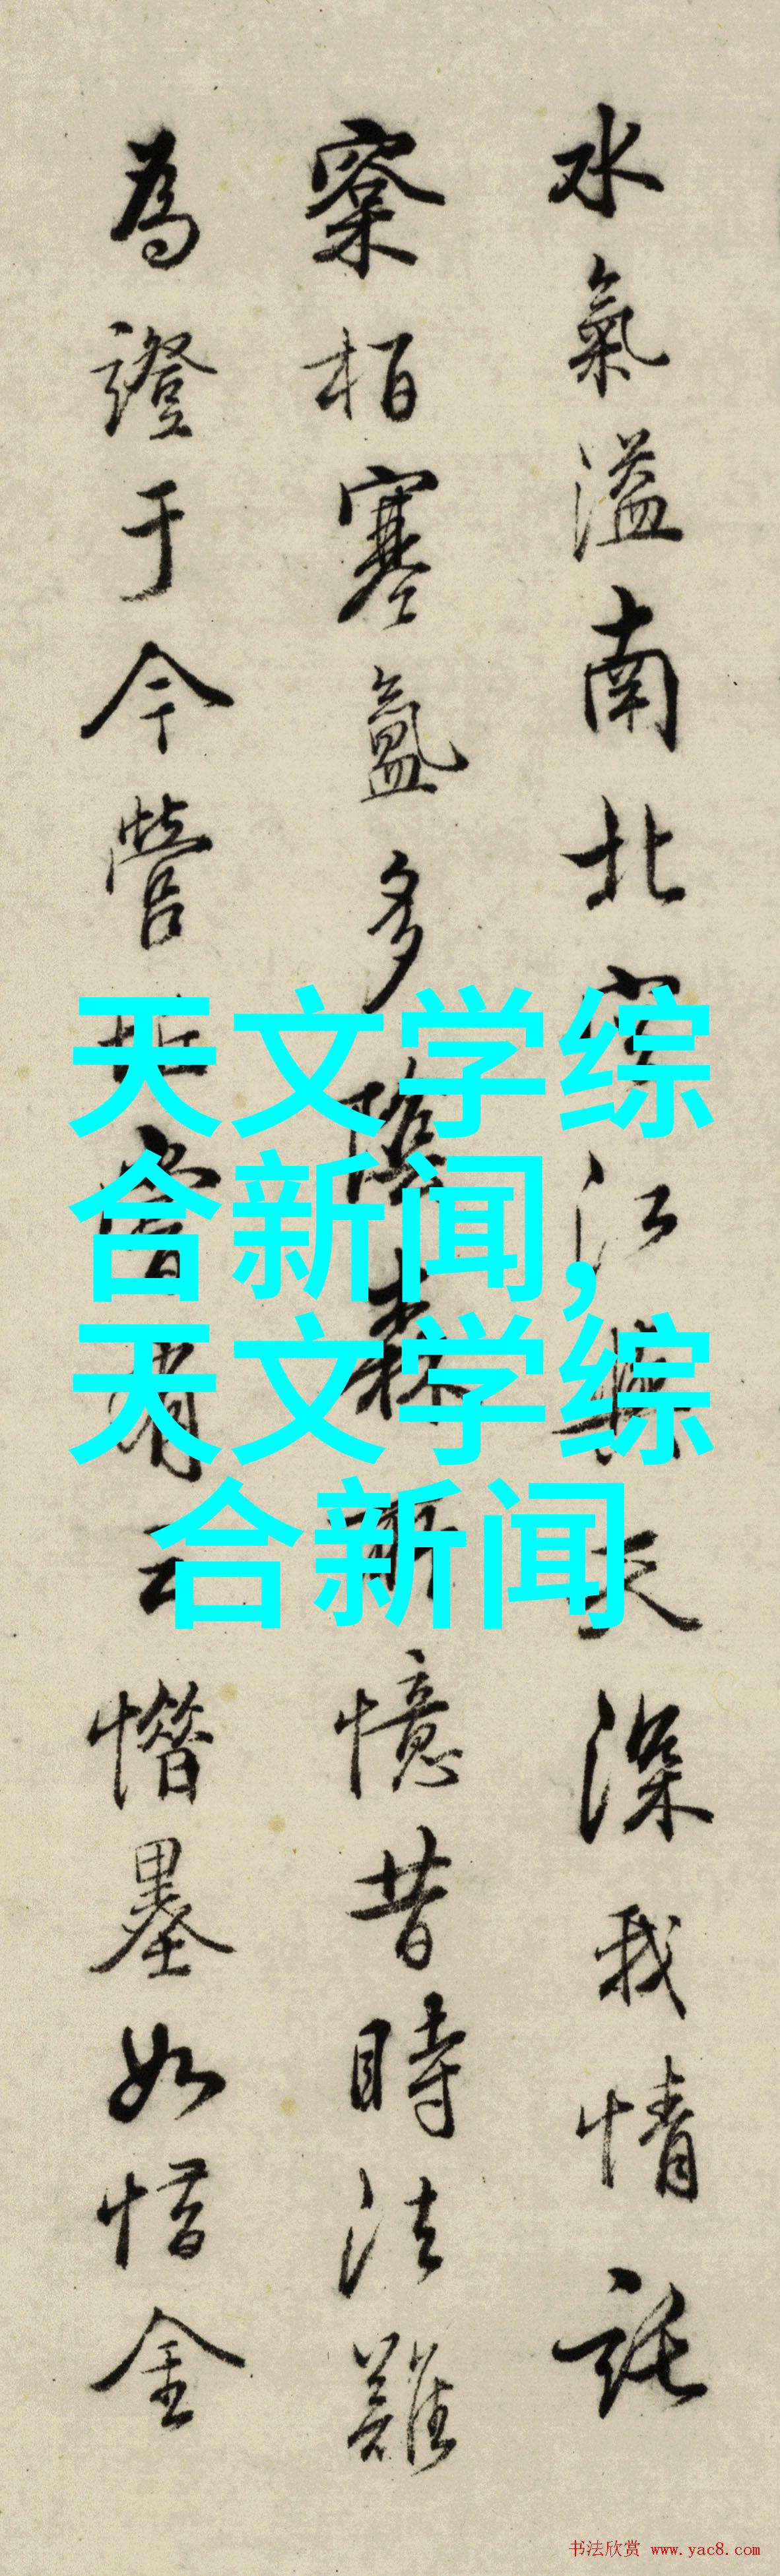 水氣溢南北
江
天深我情託
寀栢寒氳多陰森
憶昔時法難
為證于今營
有
惜墨如惜金
天文学综
合新闻,
天文学综
合新闻
书法欣赏 www.yac8.com